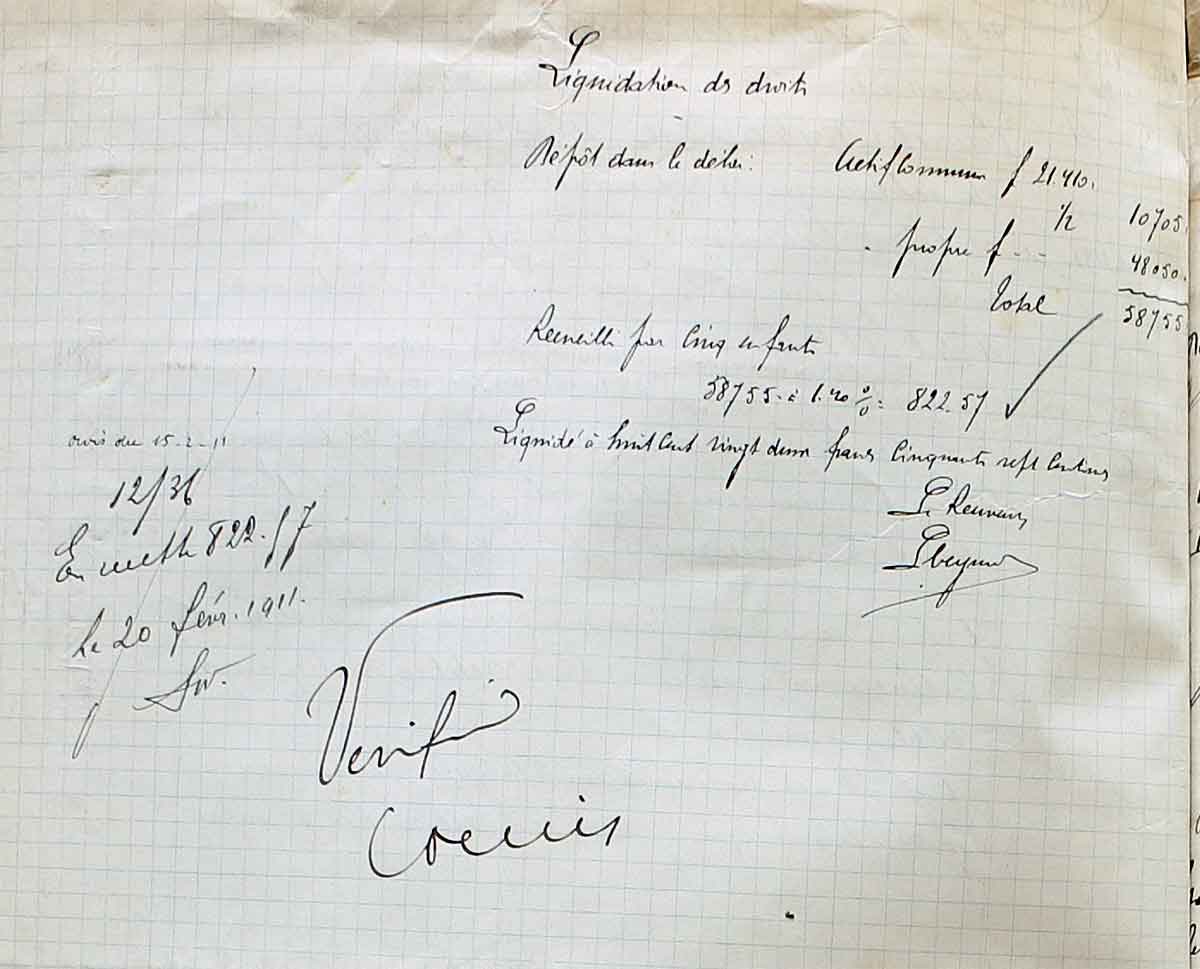 Liquidation des droits
Dépôt dans le délai: Actif Commun f 21.410.
1/2 10705.
propre f -- 48050.
Total 58755
Recueilli par Cinq enfants
58755. à 1.40 % = 822.57
Liquidé à huit cent vingt deux francs Cinquante sept Centimes
Le Receveur
avis du 15-2-11
12/36
822.57
le 20 févr. 1911.
Vérifié